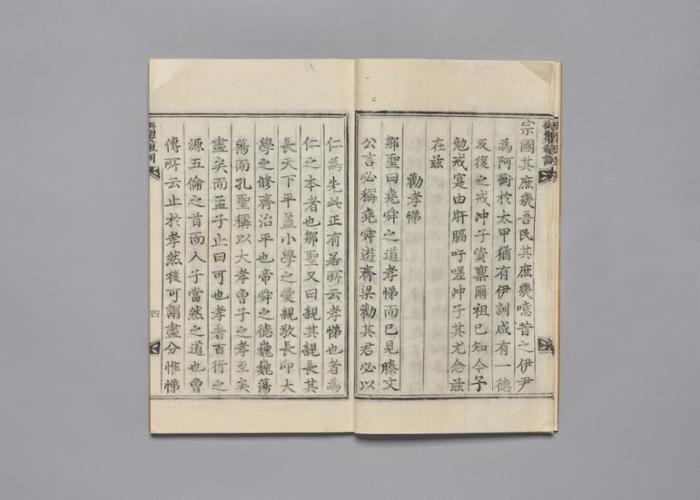 宗國其庶幾吾民其庶幾噫昔之伊尹
爲阿衡於太甲猶有伊訓咸有一德
反復之戒冲子資禀爾祖已知今予
勉戒寔由肝膈吁嗟冲子其尤念兹
在兹
勸孝悌
鄒聖曰堯舜之道孝悌而已見滕文
公言必稱堯舜遊齊梁勸其君必以
仁爲先此正有若所云孝悌也者爲
仁之本者也鄒聖又曰親其親長其
長天下平盖小學之愛親敬長卽大
學之修齊治平也帝舜之德巍巍蕩
蕩而孔聖稱以大孝曾子之孝至矣
盡矣而孟子止曰可也孝者百行之
源五倫之首而人子當然之道也曾
傳所云止於孝然後可謂盡分惟悌
四